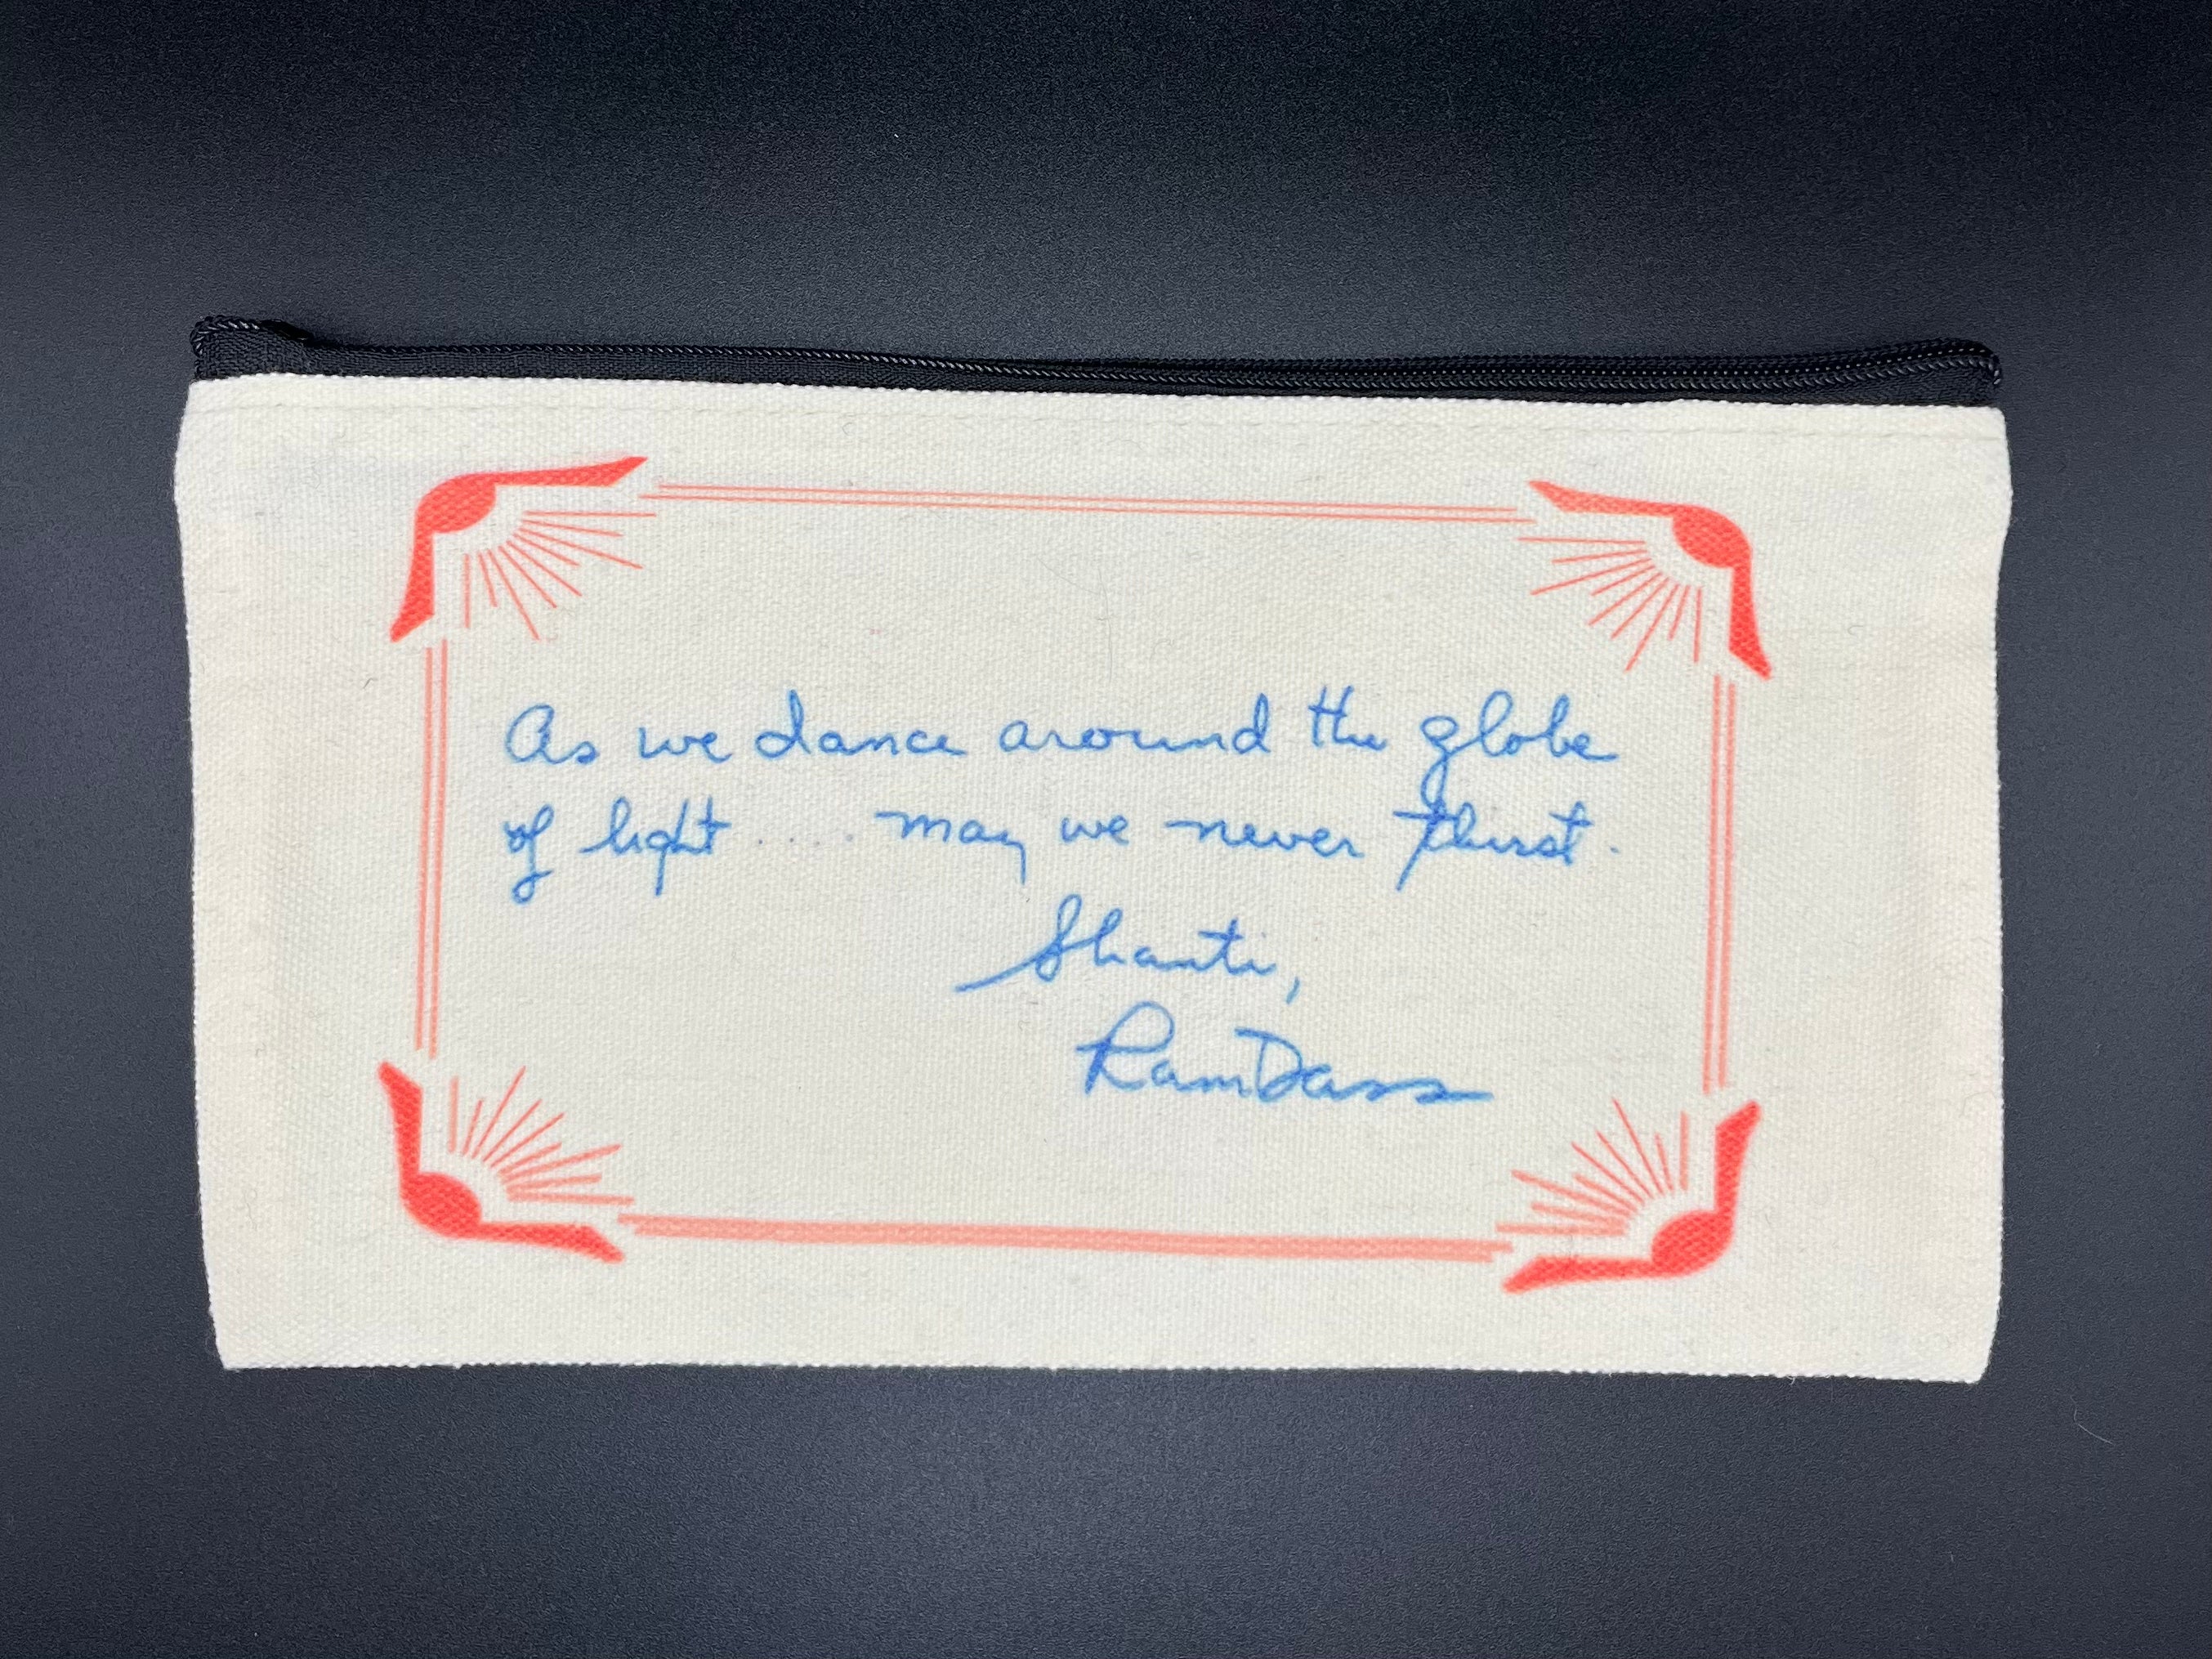 As we dance around the globe
of light .... may we never thirst.
Shanti,
Ram Dass